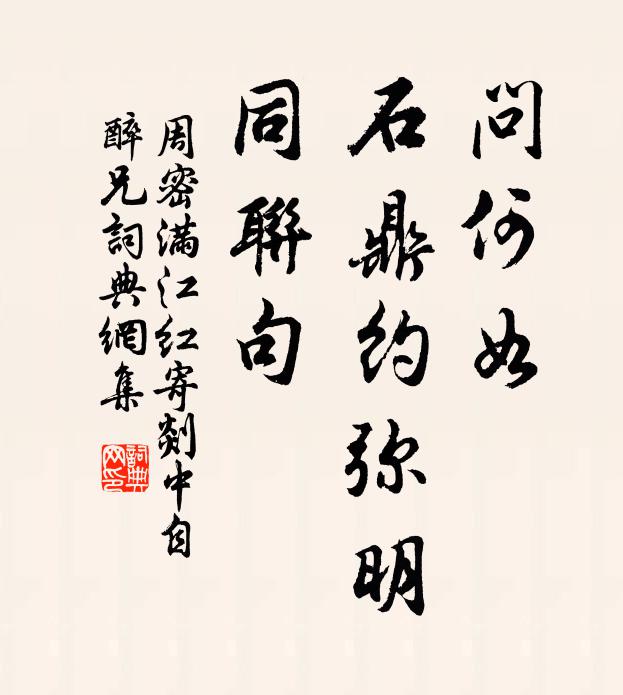 問何如
石鼎約弥明
同聯句
周密滿江红寄剡中自
醉兄詞典網集
詞典
网印